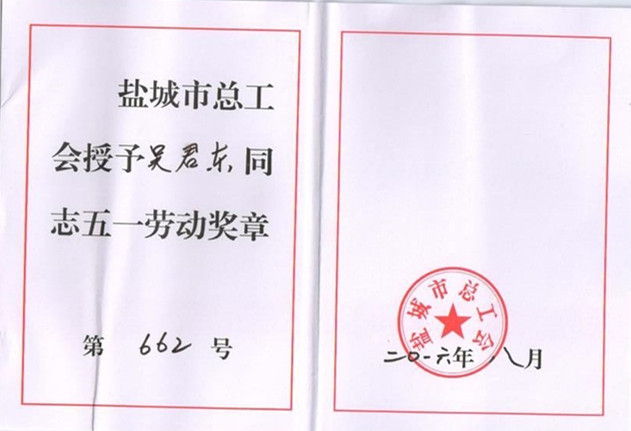 盐城市总工
会授予吴君东同
志五一劳动奖章
第 662 号
盐城市总工会
二〇一六年 八月